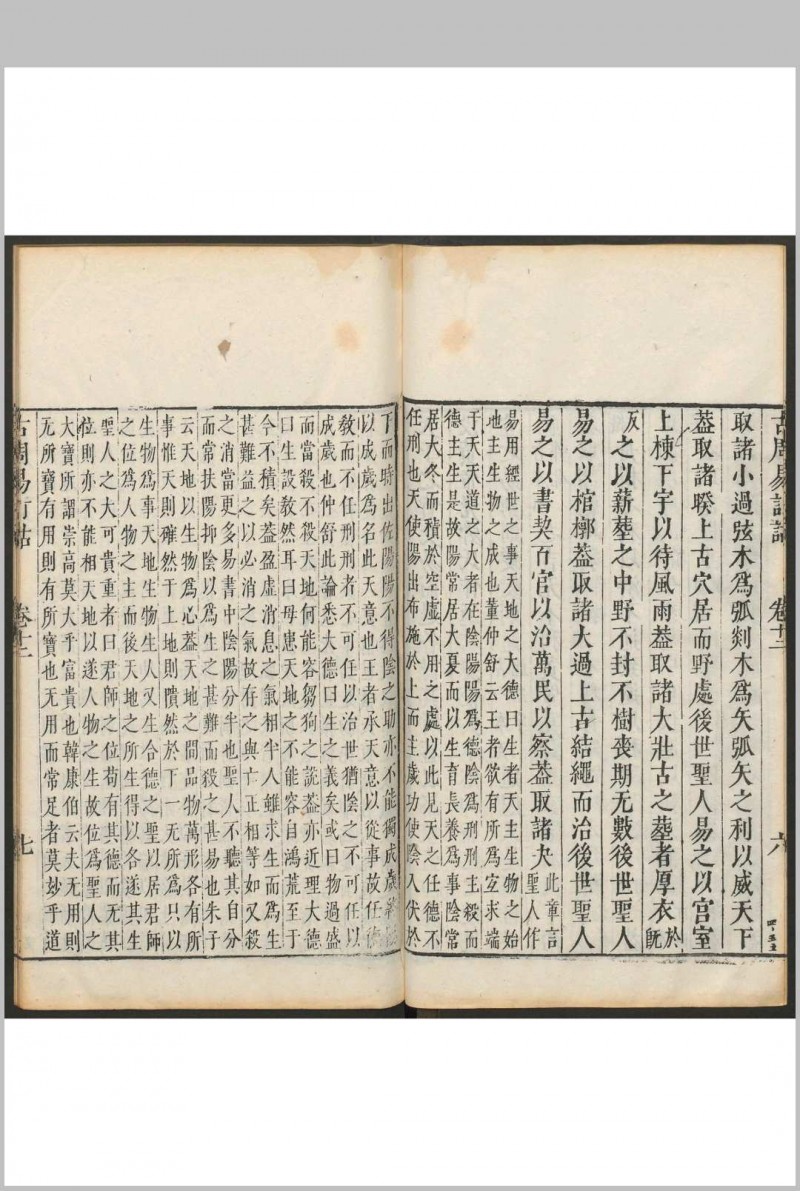 古周易訂詁 卷十二 六
取諸小過弦木爲弧剡木爲矢弧矢之利以威天下
葢取諸睽上古穴居而野處後世聖人易之以宮室
上棟下宇以待風雨葢取諸大壯古之葬者厚衣於旣
反之以薪葬之中野不封不樹喪期无數後世聖人
易之以棺槨葢取諸大過上古結繩而治後世聖人
易之以書契百官以治萬民以察葢取諸夬此章言聖人作
易用經世之事天地之大德曰生者天主生物之始
地主生物之成也董仲舒云王者欲有所爲宜求端
于天天道之大者在陰陽陽爲德陰爲刑刑主殺而
德主生是故陽常居大夏而以生育長養爲事陰常
居大冬而積於空虛不用之處以此見天之任德不
任刑也天使陽出布施於上而主歲功使陰入伏於
下而時出佐陽陽不得陰之助亦不能獨成歲終
以成歲爲名此天意也王者承天意以從事故任德
敎而不任刑刑者不可任以治世猶陰之不可任以
成歲也仲舒此論悉大德曰生之義矣或曰物過盛
而當殺不殺天地何能容芻狗之說葢亦近理大德
曰生設敎然耳曰毋患天地之不能容自鴻荒至于
今不積矣葢盈虛消息之氣相半人雖求生而爲生
甚難益之以必消之氣故存之與亡正相等如又殺
之消當更多易書中陰陽分半也聖人不聽其自分
而常扶陽抑陰以爲生之甚難而殺之甚易也朱子
云天地以生物爲心葢天地之間品物萬形各有所
事惟天則確然于上地則隤然於下一无所爲只以
生物爲事天地生物生人又生合德之聖以居君師
之位爲人物之主而後天地之所生得以各遂其生
聖人之大可貴重者曰君師之位苟有其德而无其
位則亦不能相天地以遂人物之生故位爲聖人之
大寶所謂崇高莫大乎富貴也韓康伯云夫无用則
无所寶有用則有所寶也无用而常足者莫妙乎道
古周易訂詁 卷十二 七